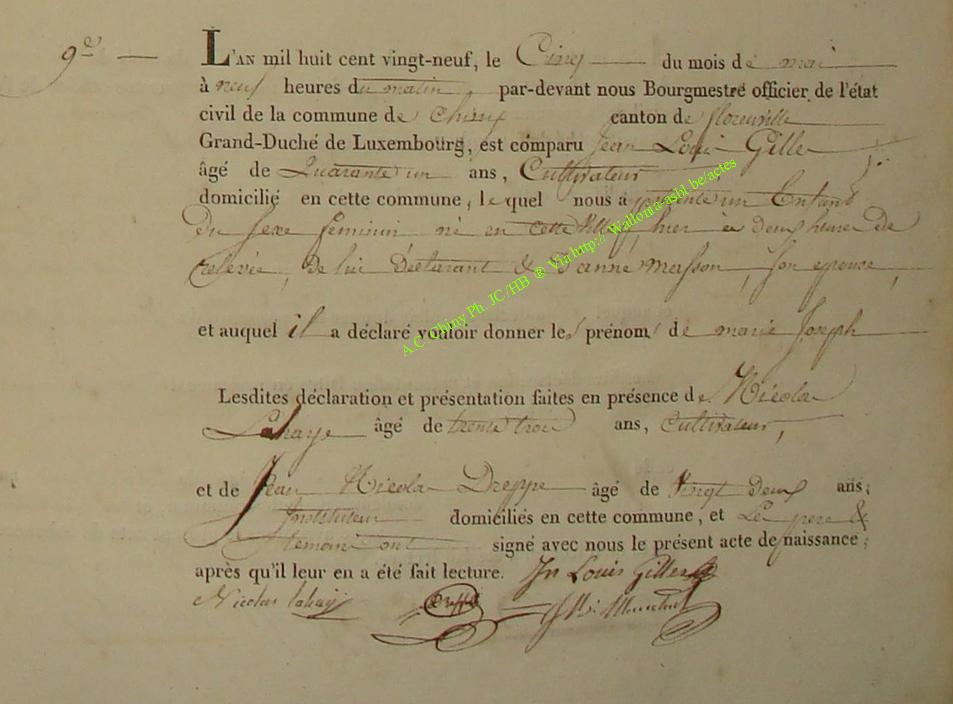 9e
L'AN mil huit cent vingt-neuf, le Cinq du mois de mai
à neuf heures du matin, par-devant nous Bourgmestre officier de l'état
civil de la commune de Chiny canton de florenville
Grand-Duché de Luxembourg, est comparu Jean Louis Gille
âgé de Quarante un ans, Cultivateur
domicilié en cette commune, lequel nous a présenté un Enfant
du sexe feminin né en cette Ville, hier à deux heures de
relevée, de lui Déclarant & D'anne masson, son epouse,
et auquel il a déclaré vouloir donner les prénoms de marie Joseph
Lesdites déclaration et présentation faites en présence de Nicola
Lahaye âgé de trente trois ans, Cultivateur,
et de Jean Nicola Dreppe âgé de Vingt deux ans,
Instituteur domiciliés en cette commune, et Le pere &
temoins ont signé avec nous le présent acte de naissance,
après qu'il leur en a été fait lecture. Jn Louis Gille
Nicolas lahaÿ Dreppe
A.C. Chiny Ph. JC /HB ® Via http:// Wallonia-asbl.be/actes